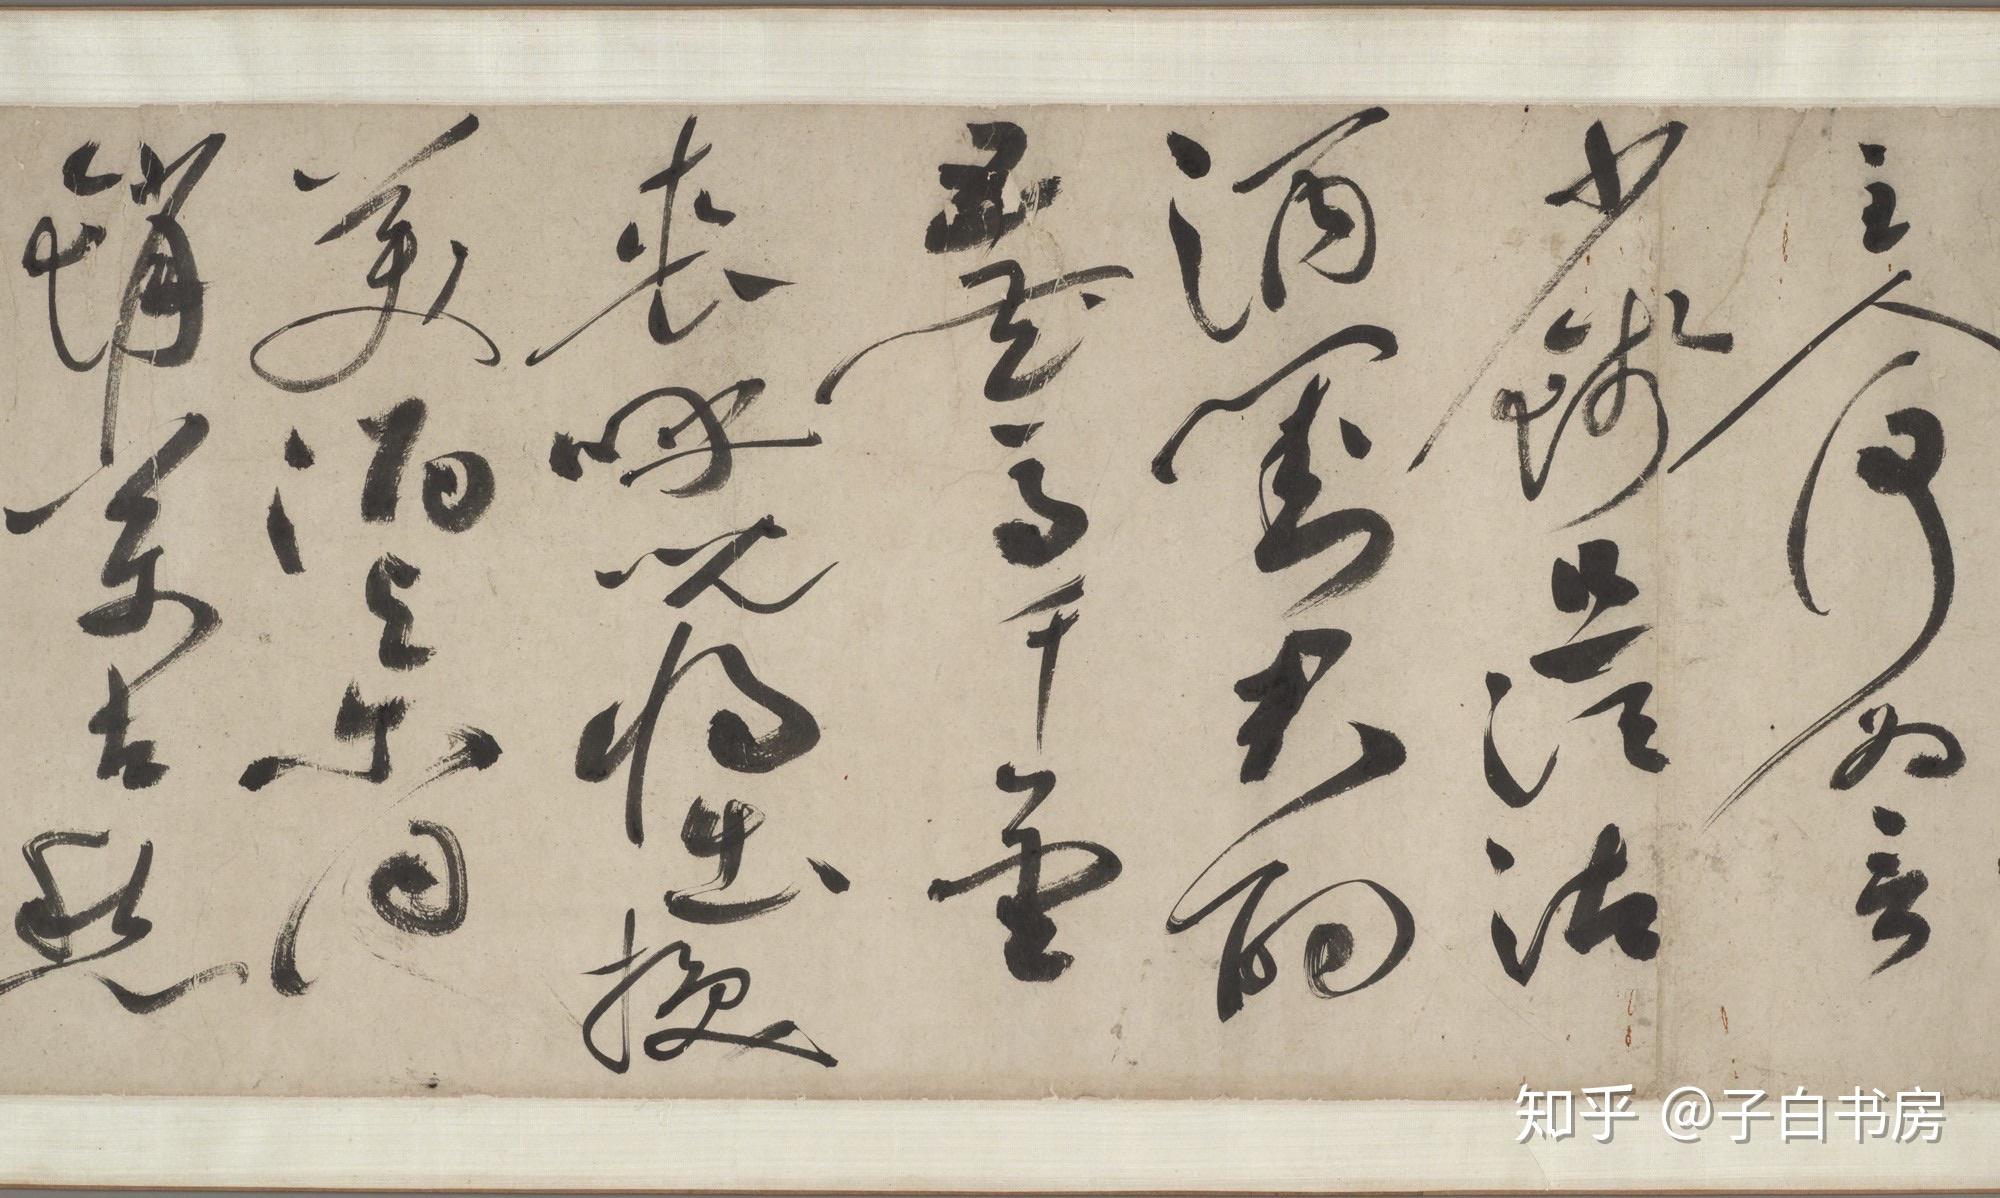 主人何為言
少錢且須沽
酒對君酌
五花馬千金
裘呼兒將出換
美酒與爾同
銷萬古愁
知乎 @子白书房